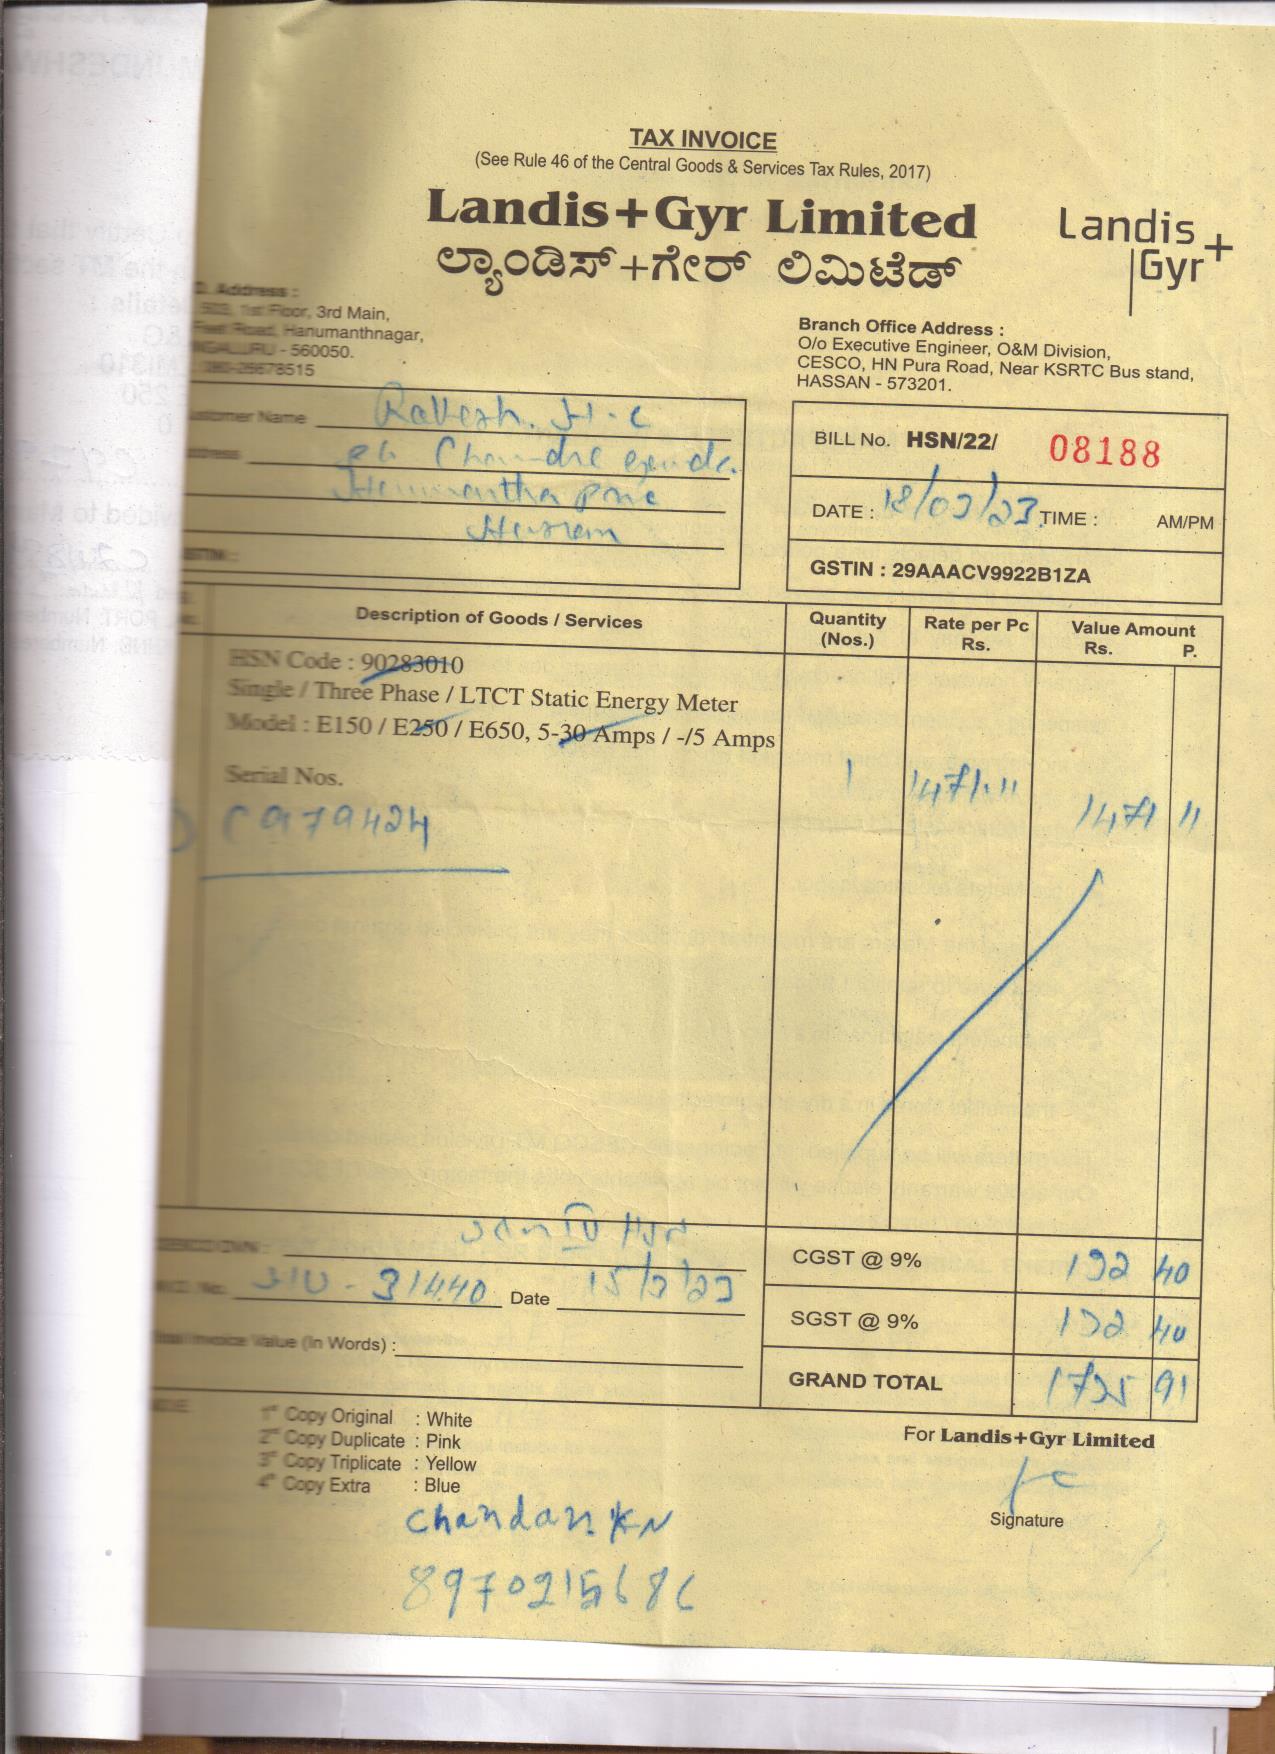 TAX INVOICE
(See Rule 46 of the Central Goods & Services Tax Rules, 2017)
Landis+Gyr Limited
ಲ್ಯಾಂಡಿಸ್+ಗೇರ್ ಲಿಮಿಟೆಡ್
Landis
Gyr+
D. Address :
503, 1st Floor, 3rd Main,
Feet Road, Hanumanthnagar,
NGALURU - 560050.
080-26678515
Branch Office Address :
O/o Executive Engineer, O&M Division,
CESCO, HN Pura Road, Near KSRTC Bus stand,
HASSAN - 573201.
ustomer Name Rakesh. H.C
ddress
Hassan
STIN :
BILL No. HSN/22/ 08188
DATE : 18/03/23 TIME : AM/PM
GSTIN : 29AAACV9922B1ZA
Description of Goods / Services Quantity (Nos.) Rate per Pc Rs. Value Amount Rs. P.
HSN Code : 90283010
Single / Three Phase / LTCT Static Energy Meter
Model : E150 / E250 / E650, 5-30 Amps / -/5 Amps
Serial Nos.
C979424 1 1471.11 1471 11
CGST @ 9% 132 40
31440 Date 15/3/23
SGST @ 9% 132 40
Total Invoice Value (In Words) :
GRAND TOTAL 1735 91
1st Copy Original : White
2nd Copy Duplicate : Pink
3rd Copy Triplicate : Yellow
4th Copy Extra : Blue
For Landis+Gyr Limited
Signature
Chandan KN
8970215686